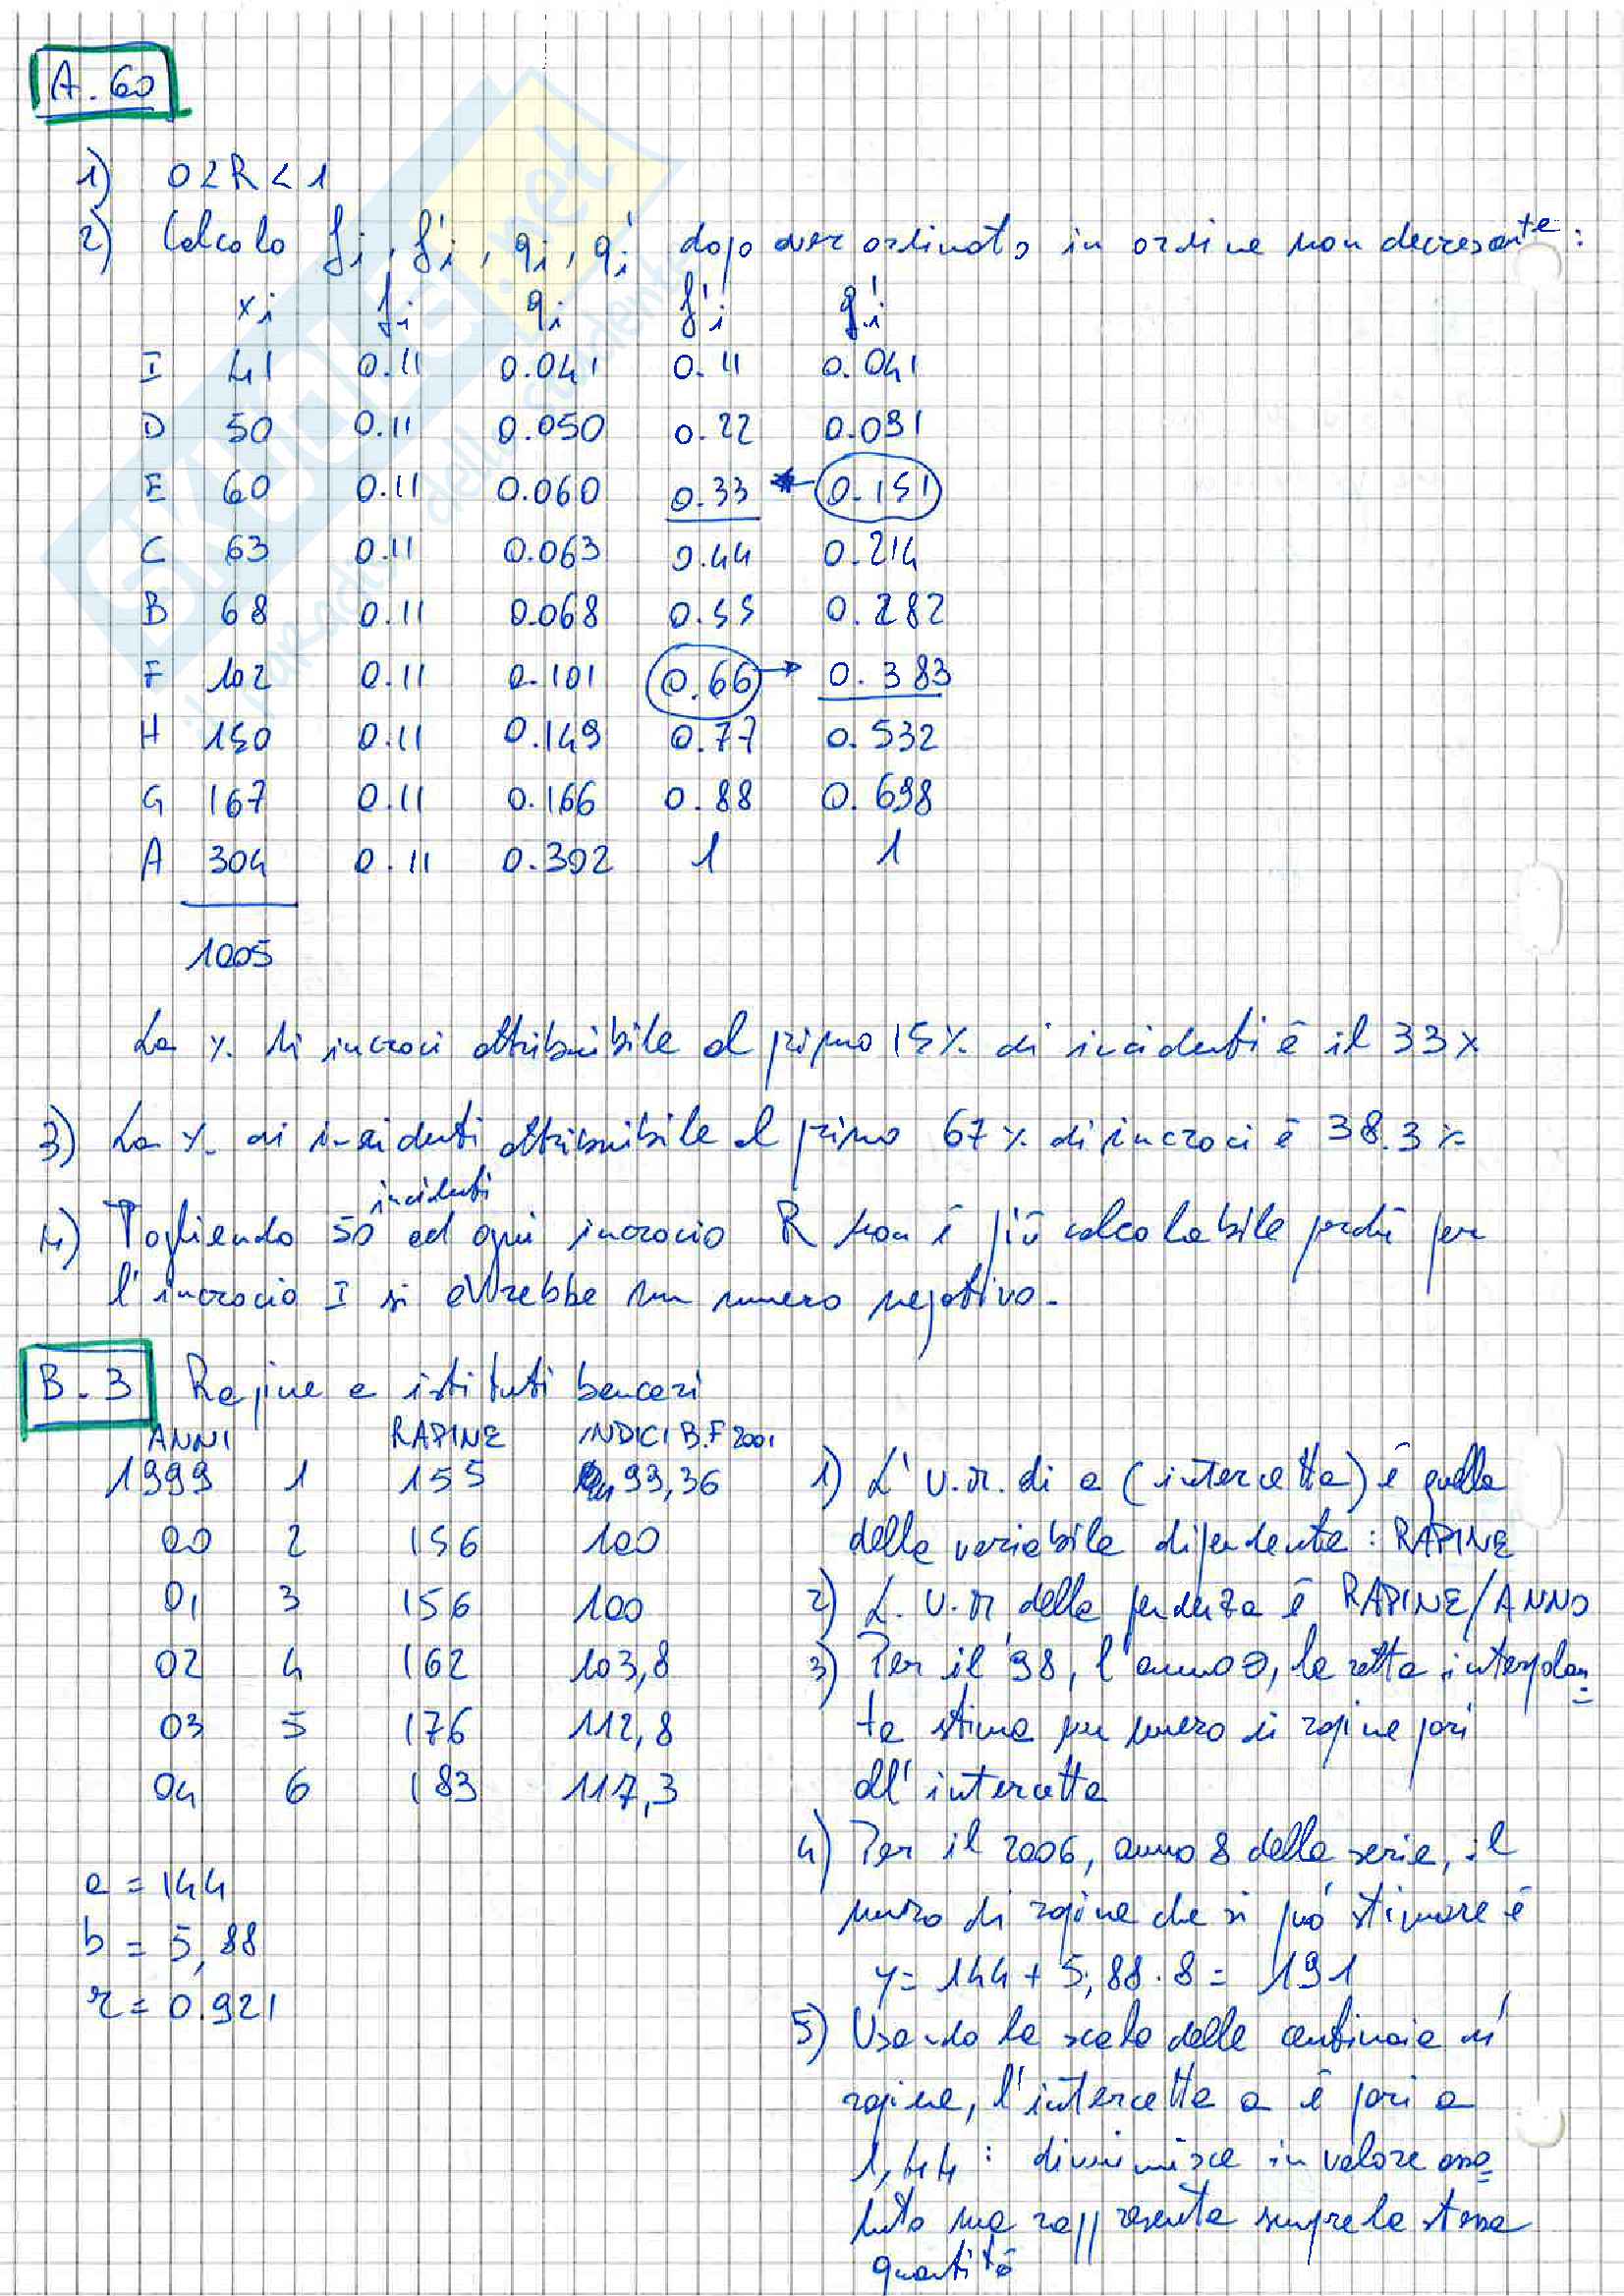 A. 60
1) 0<R<1
2) Calcolo fi, f'i, qi, q'i dopo aver ordinato in ordine non decrescente:
xi fi qi f'i q'i
I 41 0.11 0.041 0.11 0.041
D 50 0.11 0.050 0.22 0.091
E 60 0.11 0.060 0.33 0.151
C 63 0.11 0.063 0.44 0.214
B 68 0.11 0.068 0.55 0.282
F 102 0.11 0.101 0.66 → 0.383
H 150 0.11 0.149 0.77 0.532
G 167 0.11 0.166 0.88 0.698
A 304 0.11 0.302 1 1
1005
La % di incroci attribuibile al primo 15% di incidenti è il 33%
3) La % di incidenti attribuibile al primo 67% di incroci è 38.3%
4) Togliendo 50 incidenti ad ogni incrocio R non è più calcolabile perché per
l'incrocio I si avrebbe un numero negativo.
B. 3 Rapine a istituti bancari
ANNI RAPINE INDICI B.F 2001
1999 1 155 99,36
00 2 156 100
01 3 156 100
02 4 162 103,8
03 5 176 112,8
04 6 183 117,3
a = 144
b = 5,88
r = 0.921
1) L'U.M. di a (intercetta) è quella
della variabile dipendente: RAPINE
2) L'U.M. della pendenza è RAPINE/ANNO
3) Per il '98, l'anno 0, la retta interpolan=
te stima un numero di rapine pari
all'intercetta
4) Per il 2006, anno 8 della serie, il
numero di rapine che si può stimare è
y = 144 + 5,88 . 8 = 191
5) Usando la scala delle centinaia di
rapine, l'intercetta a è pari a
1,44 : diminuisce in valore asso=
luto ma rappresenta sempre la stessa
quantità
SKUOLA.net
il paradiso dello studente